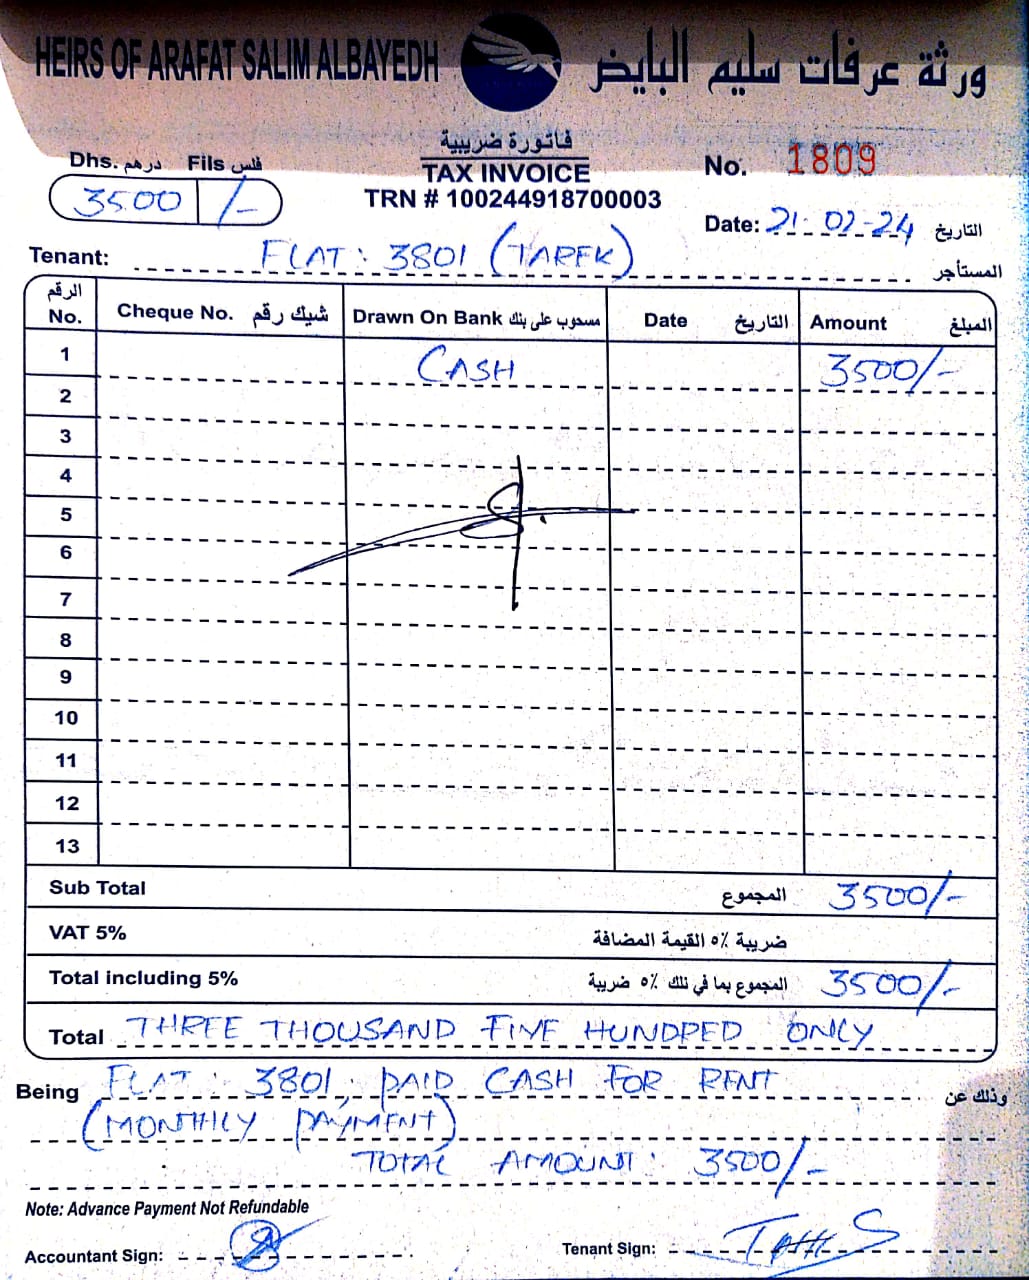 HEIRS OF ARAFAT SALIM ALBAYEDH ورثة عرفات سليم البايض
فاتورة ضريبية
TAX INVOICE
TRN # 100244918700003
Dhs. درهم Fils فلس
3500 /-
No. 1809
Date: 21-02-24 التاريخ
Tenant: FLAT: 3801 (TAREK) المستأجر
الرقم No. Cheque No. شيك رقم Drawn On Bank مسحوب على بنك Date التاريخ Amount المبلغ
1 CASH 3500/-
2
3
4
5
6
7
8
9
10
11
12
13
Sub Total المجموع 3500/-
VAT 5% ضريبة ٥٪ القيمة المضافة
Total including 5% المجموع بما في ذلك ٥٪ ضريبة 3500/-
Total THREE THOUSAND FIVE HUNDRED ONLY
Being FLAT: 3801, PAID CASH FOR RENT وذلك عن
(MONTHLY PAYMENT)
TOTAL AMOUNT: 3500/-
Note: Advance Payment Not Refundable
Accountant Sign:
Tenant Sign: